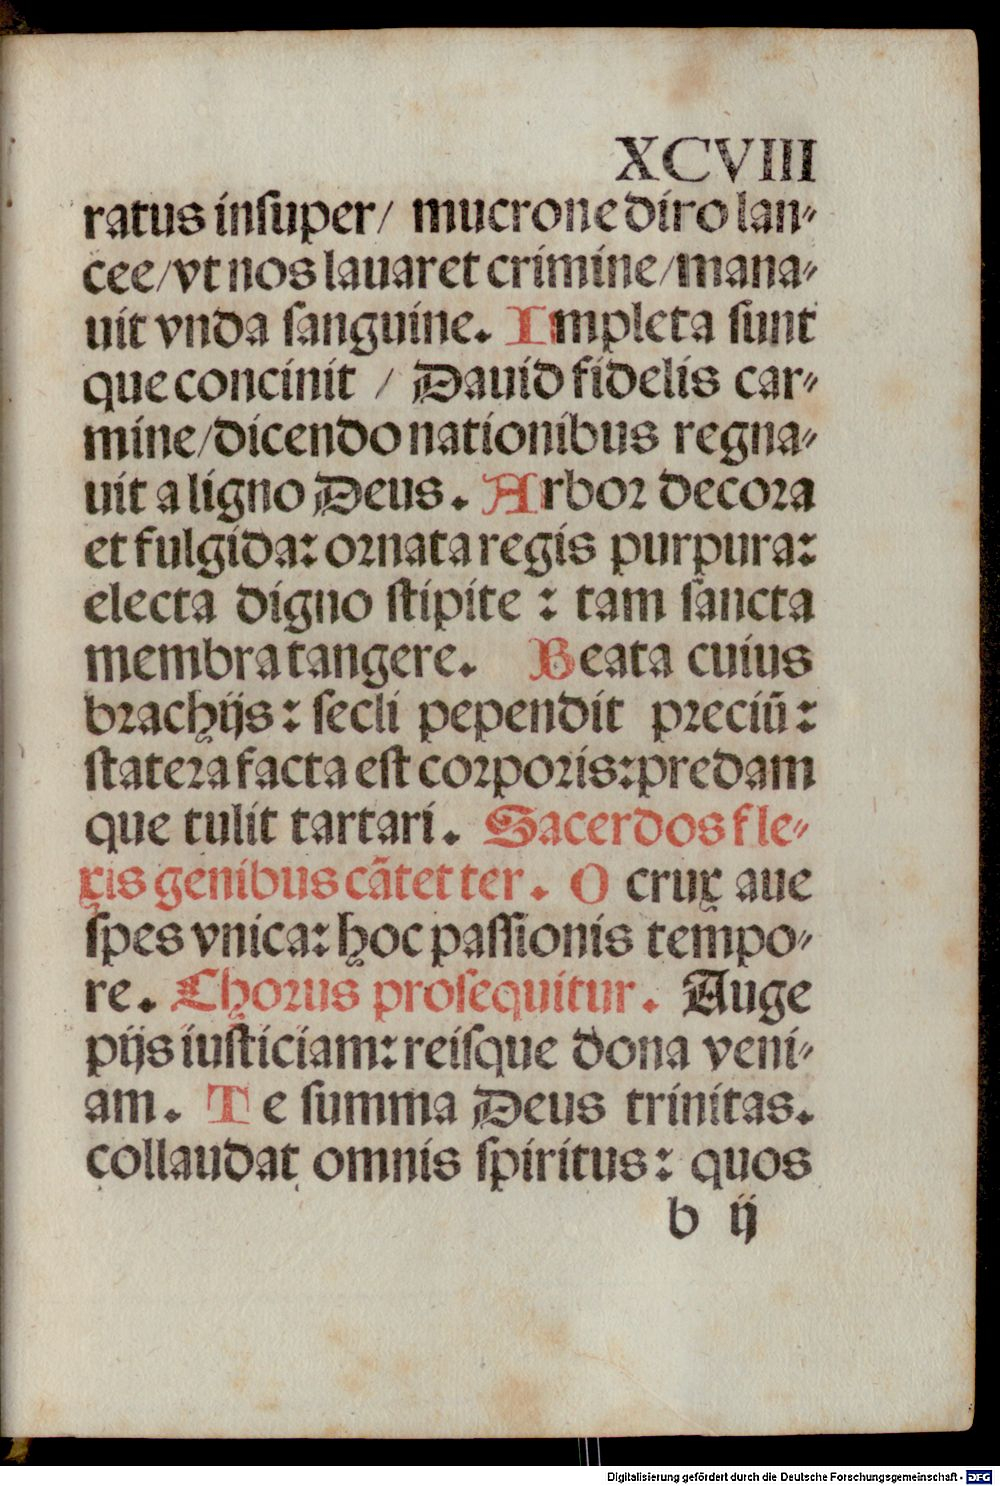 XCVIII
ratus inſuper/ mucrone diro lan⸗
cee/vt nos lauaret crimine/mana⸗
uit vnda ſanguine. Impleta ſunt
que concinit / Dauid fidelis car⸗
mine/dicendo nationibus regna⸗
uit a ligno Deus. Arbor decora
et fulgida: ornata regis purpura:
electa digno ſtipite : tam ſancta
membra tangere. Beata cuius
brachijs: ſecli pependit preciū:
ſtatera facta eſt corporis:predam
que tulit tartari. Sacerdos fle⸗
xis genibus cātet ter. O crux aue
ſpes vnica: hoc paſſionis tempo⸗
re. Chorus proſequitur. Auge
pijs iuſticiam: reiſque dona veni⸗
am. Te ſumma Deus trinitas.
collaudat omnis ſpiritus: quos
b ij
Digitalisierung gefördert durch die Deutsche Forschungsgemeinschaft - DFG